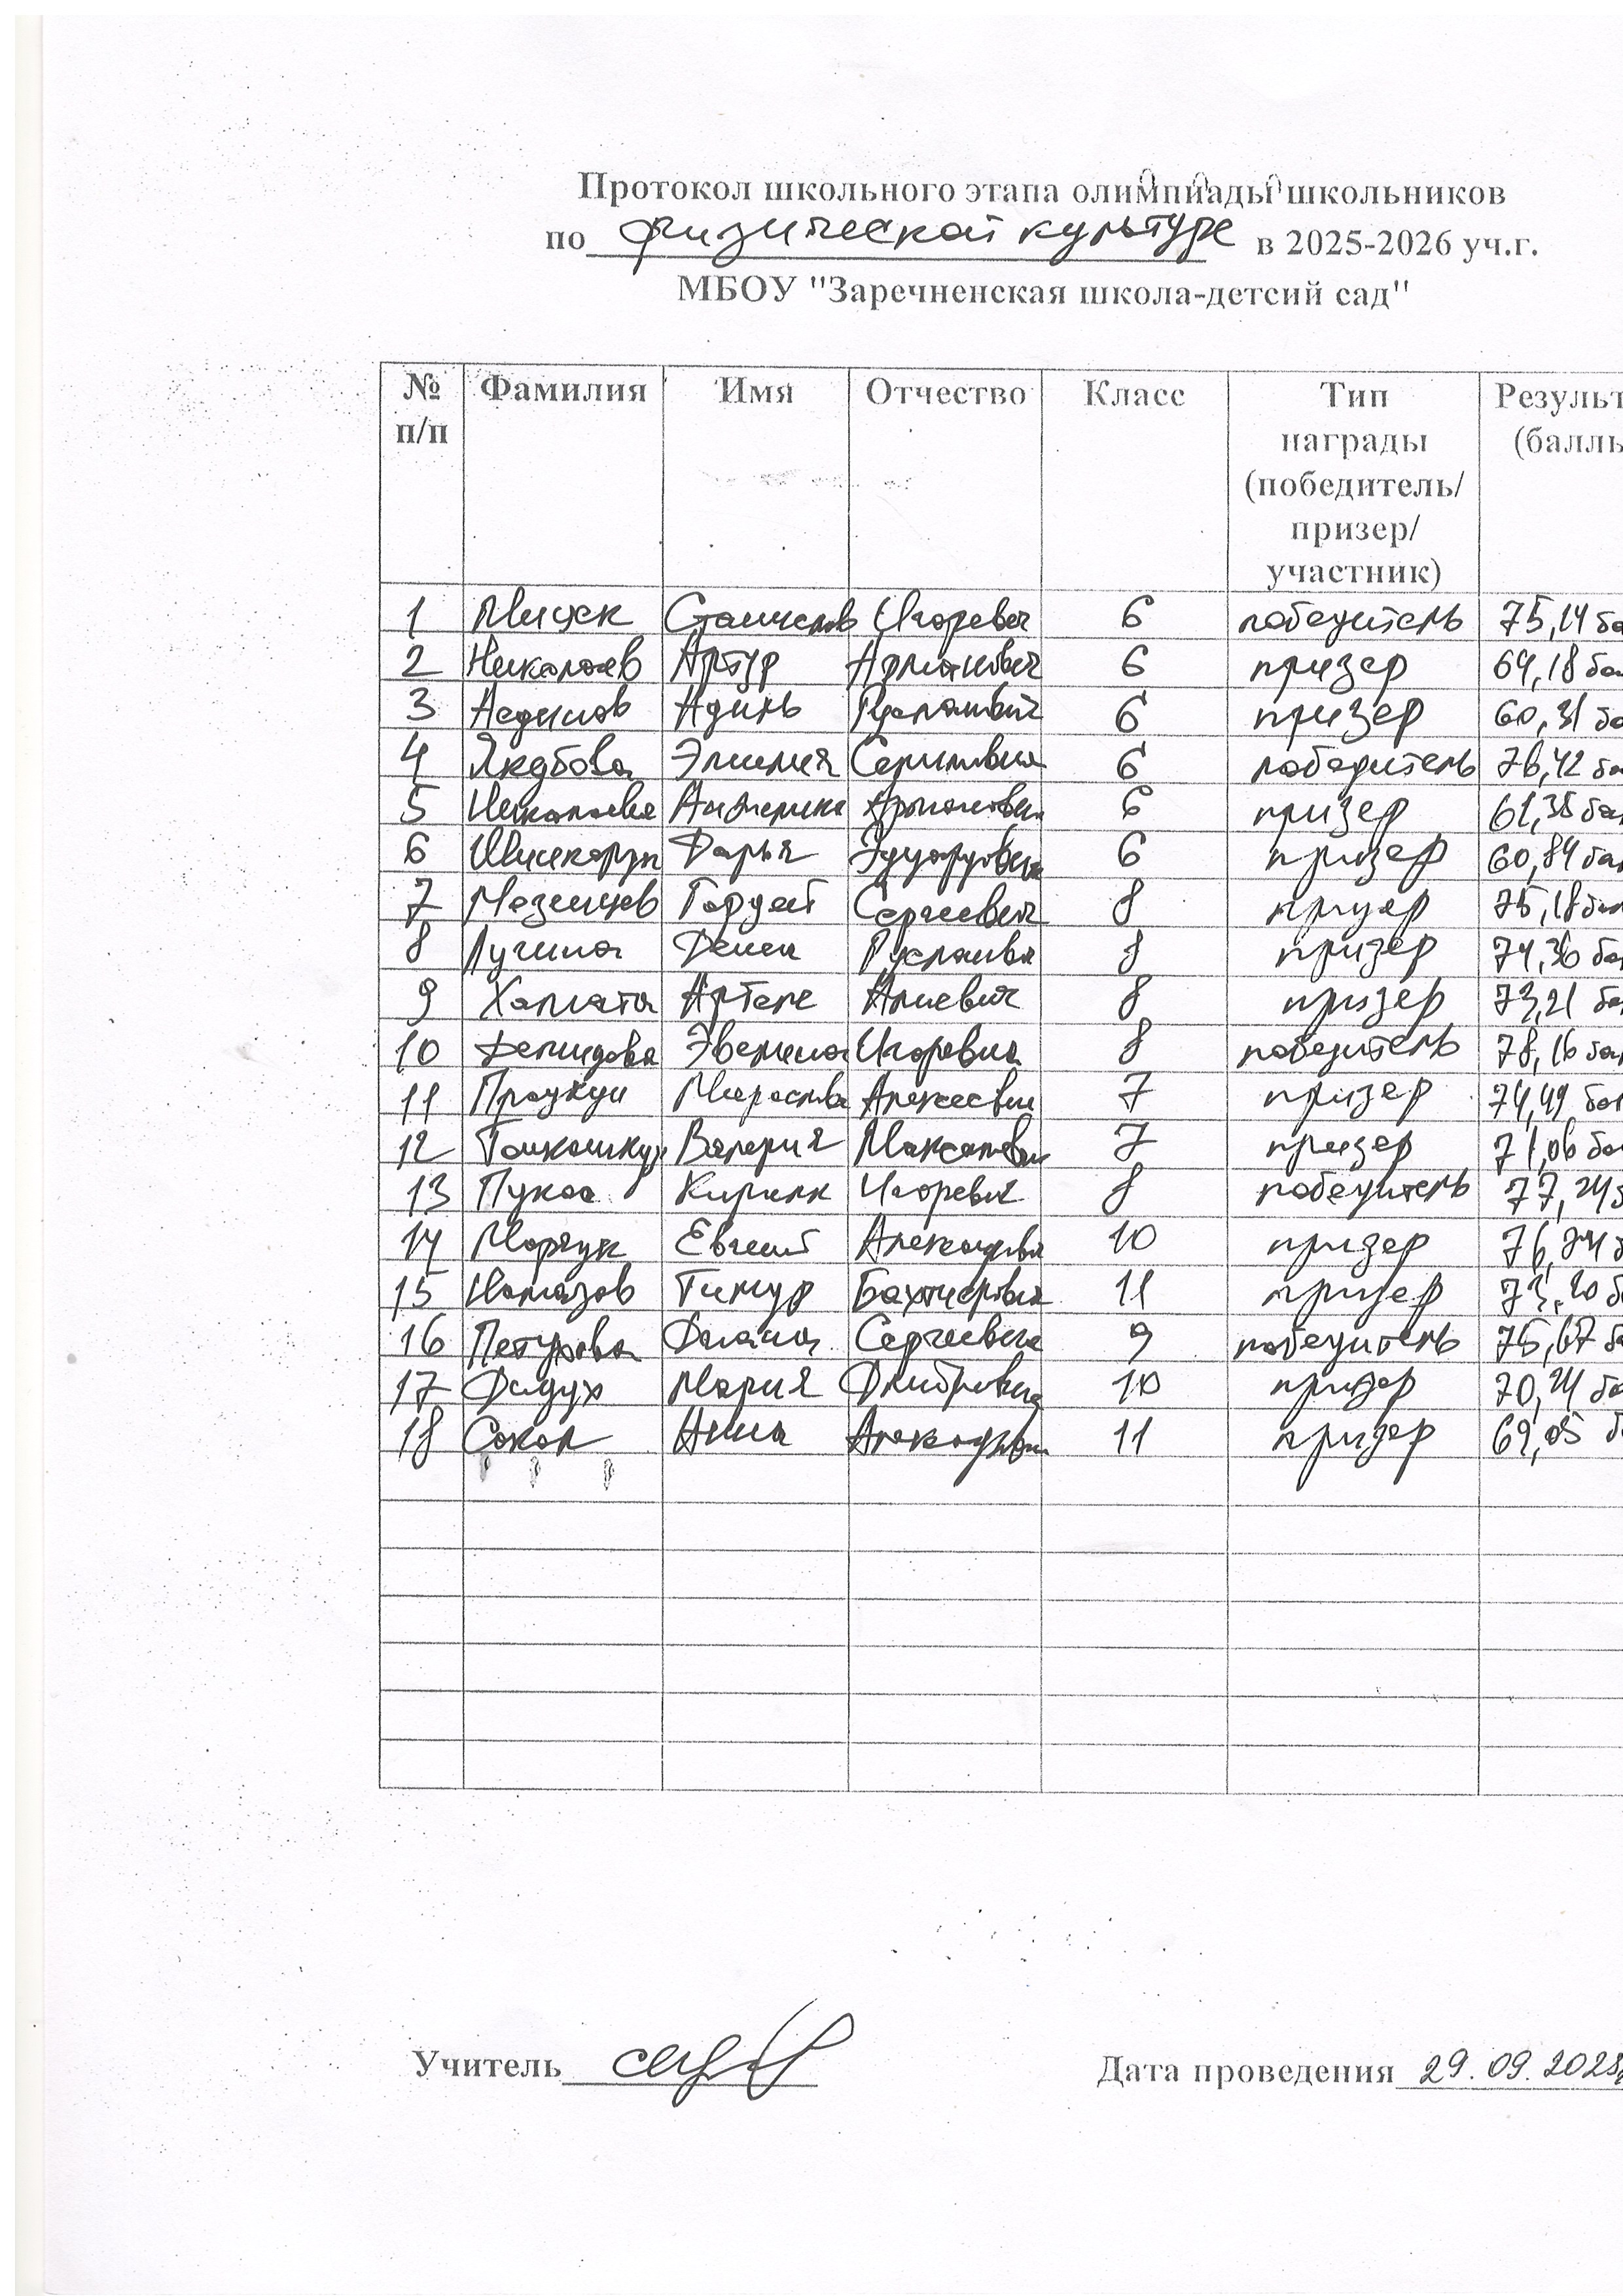 Протокол школьного этапа олимпиады школьников
по физической культуре в 2025-2026 уч.г.
МБОУ "Заречненская школа-детсий сад"
№ п/п Фамилия Имя Отчество Класс Тип награды (победитель/ призер/ участник) Результ (баллы
1 Мицек Станислав Игоревич 6 победитель 75,14 ба
2 Николаев Артур Арманович 6 призер 64,18 ба
3 Адиль 6 призер 60,31 ба
4 Якубова Эмилия 6 победитель 76,42 ба
5 Николаева Анжелика Армановна 6 призер 61,35 ба
6 Дарья Эдуардовна 6 призер 60,84 ба
7 Мезенцев Гордей Сергеевич 8 призер 75,18
8 Лучина 8 призер 74,36 ба
9 Алиевич 8 призер 73,21 ба
10 Демидова Эвелина Игоревна 8 победитель 78,16 ба
11 Мирослава Алексеевн 7 призер 74,49 ба
12 Валерия Максимовн 7 призер 71,06 ба
13 Кирилл Игоревич 8 победитель 77,24
14 Марчук Евгений 10 призер 76,24
15 Намазов Тимур 11 призер 73,20 б
16 Петухова Сергеевна 9 победитель 75,67 ба
17 Дидух Мария Дмитриевна 10 призер 70,24 ба
18 Сокол Анна 11 призер 69,05 б
Учитель Дата проведения 29.09.2025